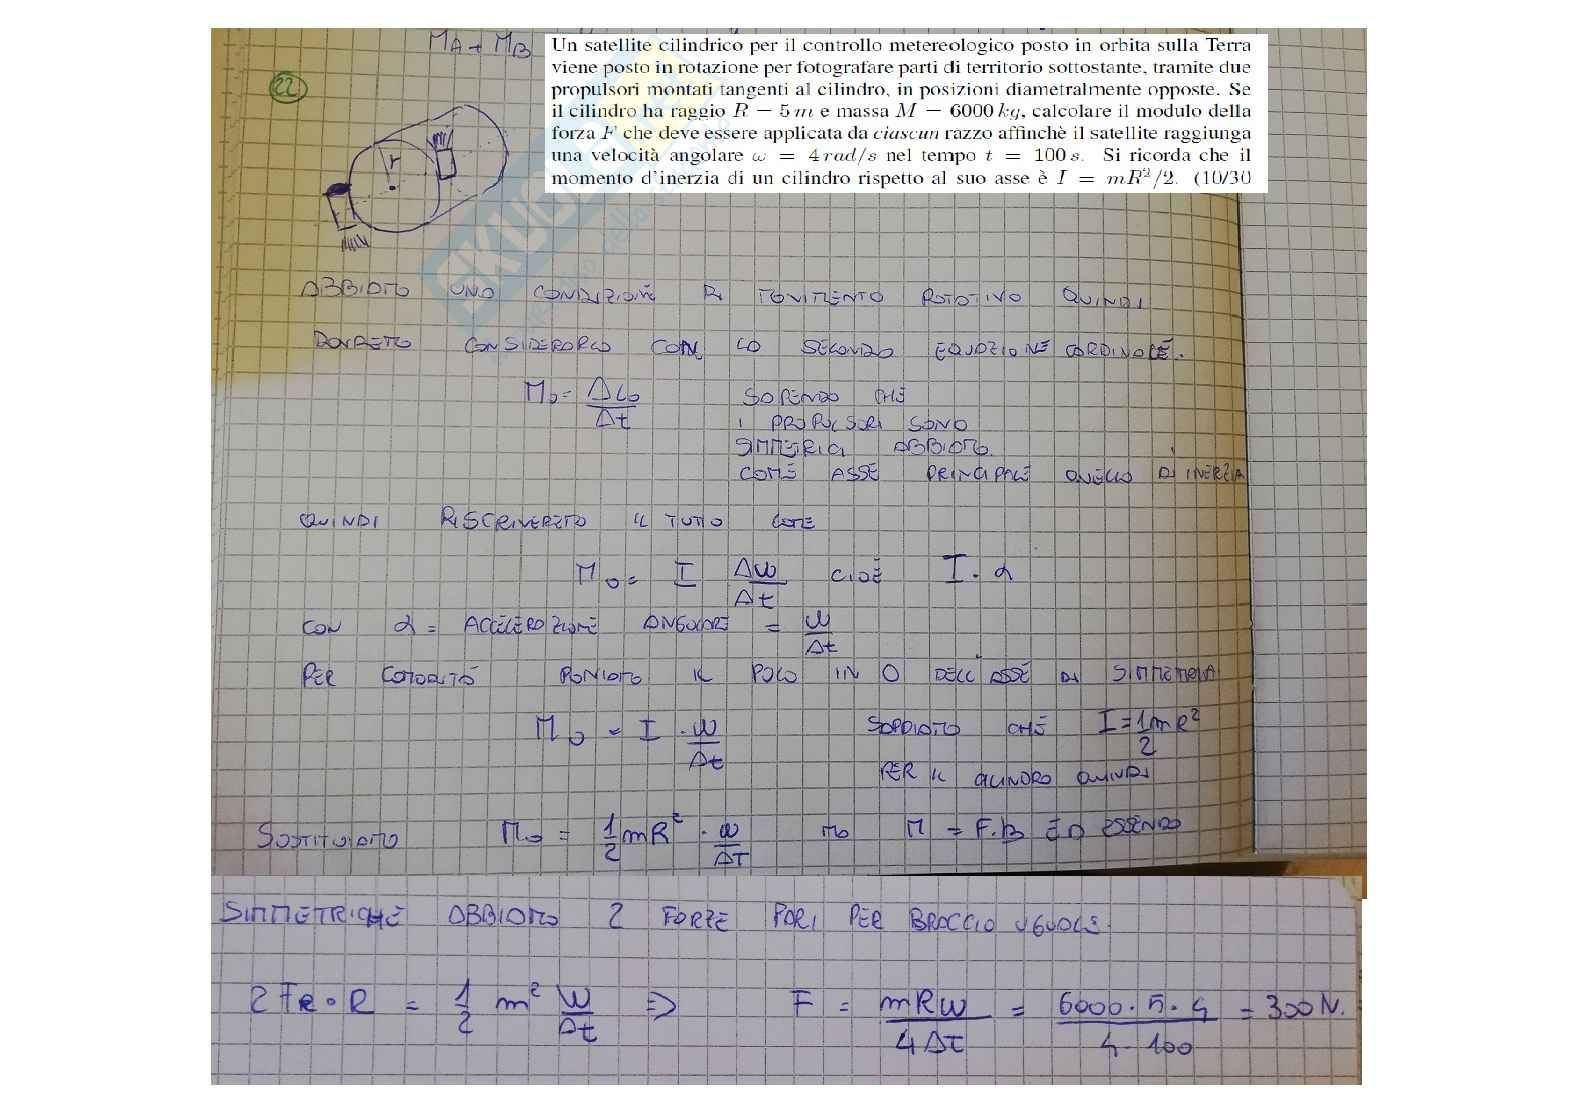 MA + MB
22
Un satellite cilindrico per il controllo metereologico posto in orbita sulla Terra
viene posto in rotazione per fotografare parti di territorio sottostante, tramite due
propulsori montati tangenti al cilindro, in posizioni diametralmente opposte. Se
il cilindro ha raggio R = 5 m e massa M = 6000 kg, calcolare il modulo della
forza F che deve essere applicata da ciascun razzo affinchè il satellite raggiunga
una velocità angolare ω = 4 rad/s nel tempo t = 100 s. Si ricorda che il
momento d'inerzia di un cilindro rispetto al suo asse è I = mR²/2. (10/30
r
SKUOLA.net
ABBIAMO UNA CONDIZIONE DI MOVIMENTO ROTATIVO QUINDI
DOVREMO CONSIDERARLO CON LA SECONDA EQUAZIONE CARDINALE.
Mo = ΔLo/Δt SAPENDO CHE
I PROPULSORI SONO
SIMMETRICI ABBIAMO
COME ASSE PRINCIPALE QUELLO DI INERZIA
QUINDI RISCRIVEREMO IL TUTTO COME
Mo = I Δω/Δt CIOÈ I · α
CON α = ACCELERAZIONE ANGOLARE = ω/Δt
PER COMODITÀ PONIAMO IL POLO IN O DELL'ASSE DI SIMMETRIA
Mo = I · ω/Δt SAPPIAMO CHE I = 1/2 mR²
PER IL CILINDRO QUINDI
SOSTITUIAMO Mo = 1/2 mR² · ω/ΔT MA M = F·B ED ESSENDO
SIMMETRICHE ABBIAMO 2 FORZE PARI PER BRACCIO UGUALE.
2 FR · R = 1/2 m² ω/Δt ⇒ F = mRω/4Δt = 6000·5·4/4·100 = 300 N.